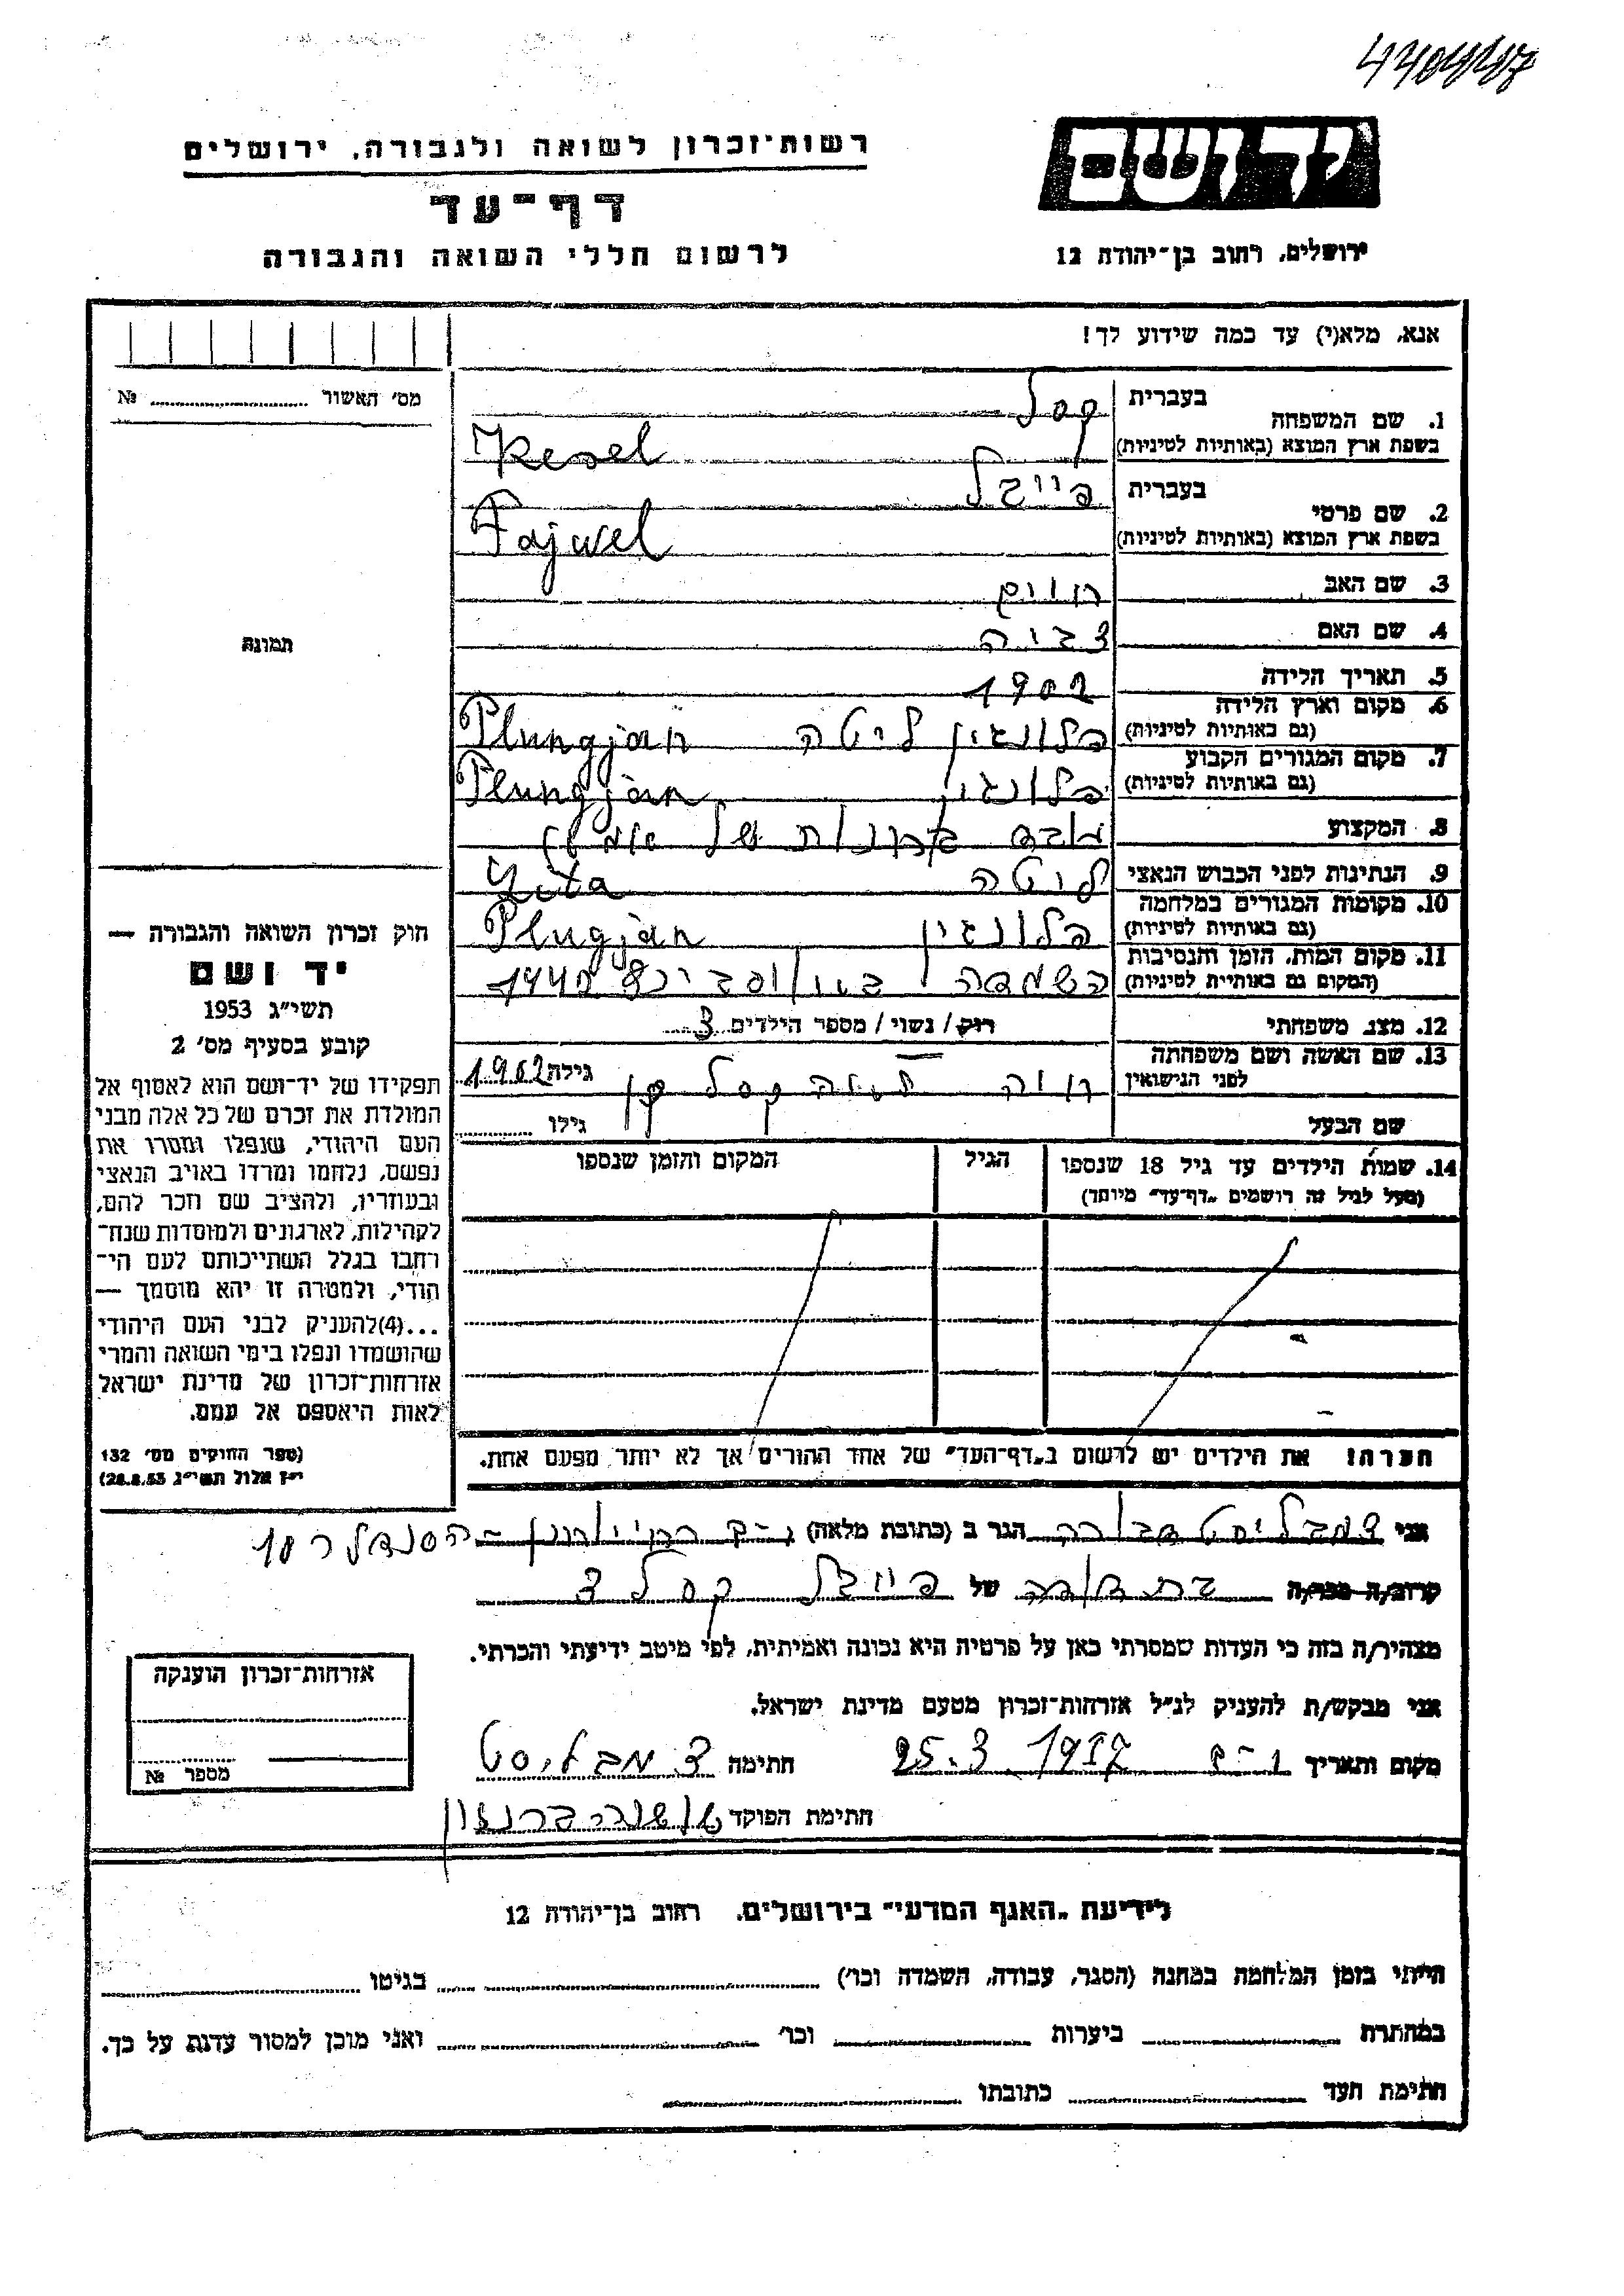 רשות־זכרון לשואה ולגבורה, ירושלים
דף־עד
לרשום חללי השואה והגבורה
יד ושם
ירושלים, רחוב בן־יהודה 12
אנא, מלא(י) עד כמה שידוע לך!
מס׳ האשור № 
1. שם המשפחה בעברית קסל
בשפת ארץ המוצא (באותיות לטיניות) Kesel
2. שם פרטי בעברית פייבל
בשפת ארץ המוצא (באותיות לטיניות) Fajwel
3. שם האב חיים
4. שם האם צביה
5. תאריך הלידה 1902
6. מקום וארץ הלידה
(גם באותיות לטיניות) פלונגין ליטה Plungjan
7. מקום המגורים הקבוע
(גם באותיות לטיניות) פלונגין Plungjan
8. המקצוע
9. הנתינות לפני הכבוש הנאצי ליטה Lita
10. מקומות המגורים במלחמה
(גם באותיות לטיניות) פלונגין Plugjan
11. מקום המות, הזמן והנסיבות
(המקום גם באותיית לטיניות) השמדה
12. מצב משפחתי רוק/ נשוי/ מספר הילדים 3
13. שם האשה ושם משפחתה
לפני הנישואין חיה קסל גילה 1902
שם הבעל גילו
14. שמות הילדים עד גיל 18 שנספו הגיל המקום והזמן שנספו
(מעל לגיל זה רושמים „דף־עד״ מיוחד)
הערה! את הילדים יש לרשום ב„דף־העד״ של אחד ההורים אך לא יותר מפעם אחת.
תמונה
חוק זכרון השואה והגבורה —
יד ושם
תשי״ג 1953
קובע בסעיף מס׳ 2
תפקידו של יד־ושם הוא לאסוף אל
המולדת את זכרם של כל אלה מבני
העם היהודי, שנפלו ומסרו את
נפשם, נלחמו ומרדו באויב הנאצי
ובעוזריו, ולהציב שם וזכר להם,
לקהילות, לארגונים ולמוסדות שנח־
רבו בגלל השתייכותם לעם הי־
הודי, ולמטרה זו יהא מוסמך —
...(4)להעניק לבני העם היהודי
שהושמדו ונפלו בימי השואה והמרי
אזרחות־זכרון של מדינת ישראל
לאות היאספם אל עמם.
(ספר החוקים מס׳ 132
י״ז אלול תשי״ג 28.8.53)
אני צמבליסט דבורה הגר ב (כתובת מלאה) הסנדלר 10
קרוב/ה מכר/ה בת דודה של פייבל קסל
מצהיר/ה בזה כי העדות שמסרתי כאן על פרטיה היא נכונה ואמיתית, לפי מיטב ידיעתי והכרתי.
אני מבקש/ת להעניק לנ״ל אזרחות־זכרון מטעם מדינת ישראל.
מקום ותאריך 25.3.1957 חתימה צמבליסט
חתימת הפוקד
אזרחות־זכרון הוענקה
מספר №
לידיעת „האגף המדעי״ בירושלים, רחוב בן־יהודה 12
הייתי בזמן המלחמה במחנה (הסגר, עבודה, השמדה וכו׳) בגיטו
במחתרת ביערות וכו׳ ואני מוכן למסור עדות על כך.
חתימת העד כתובתו